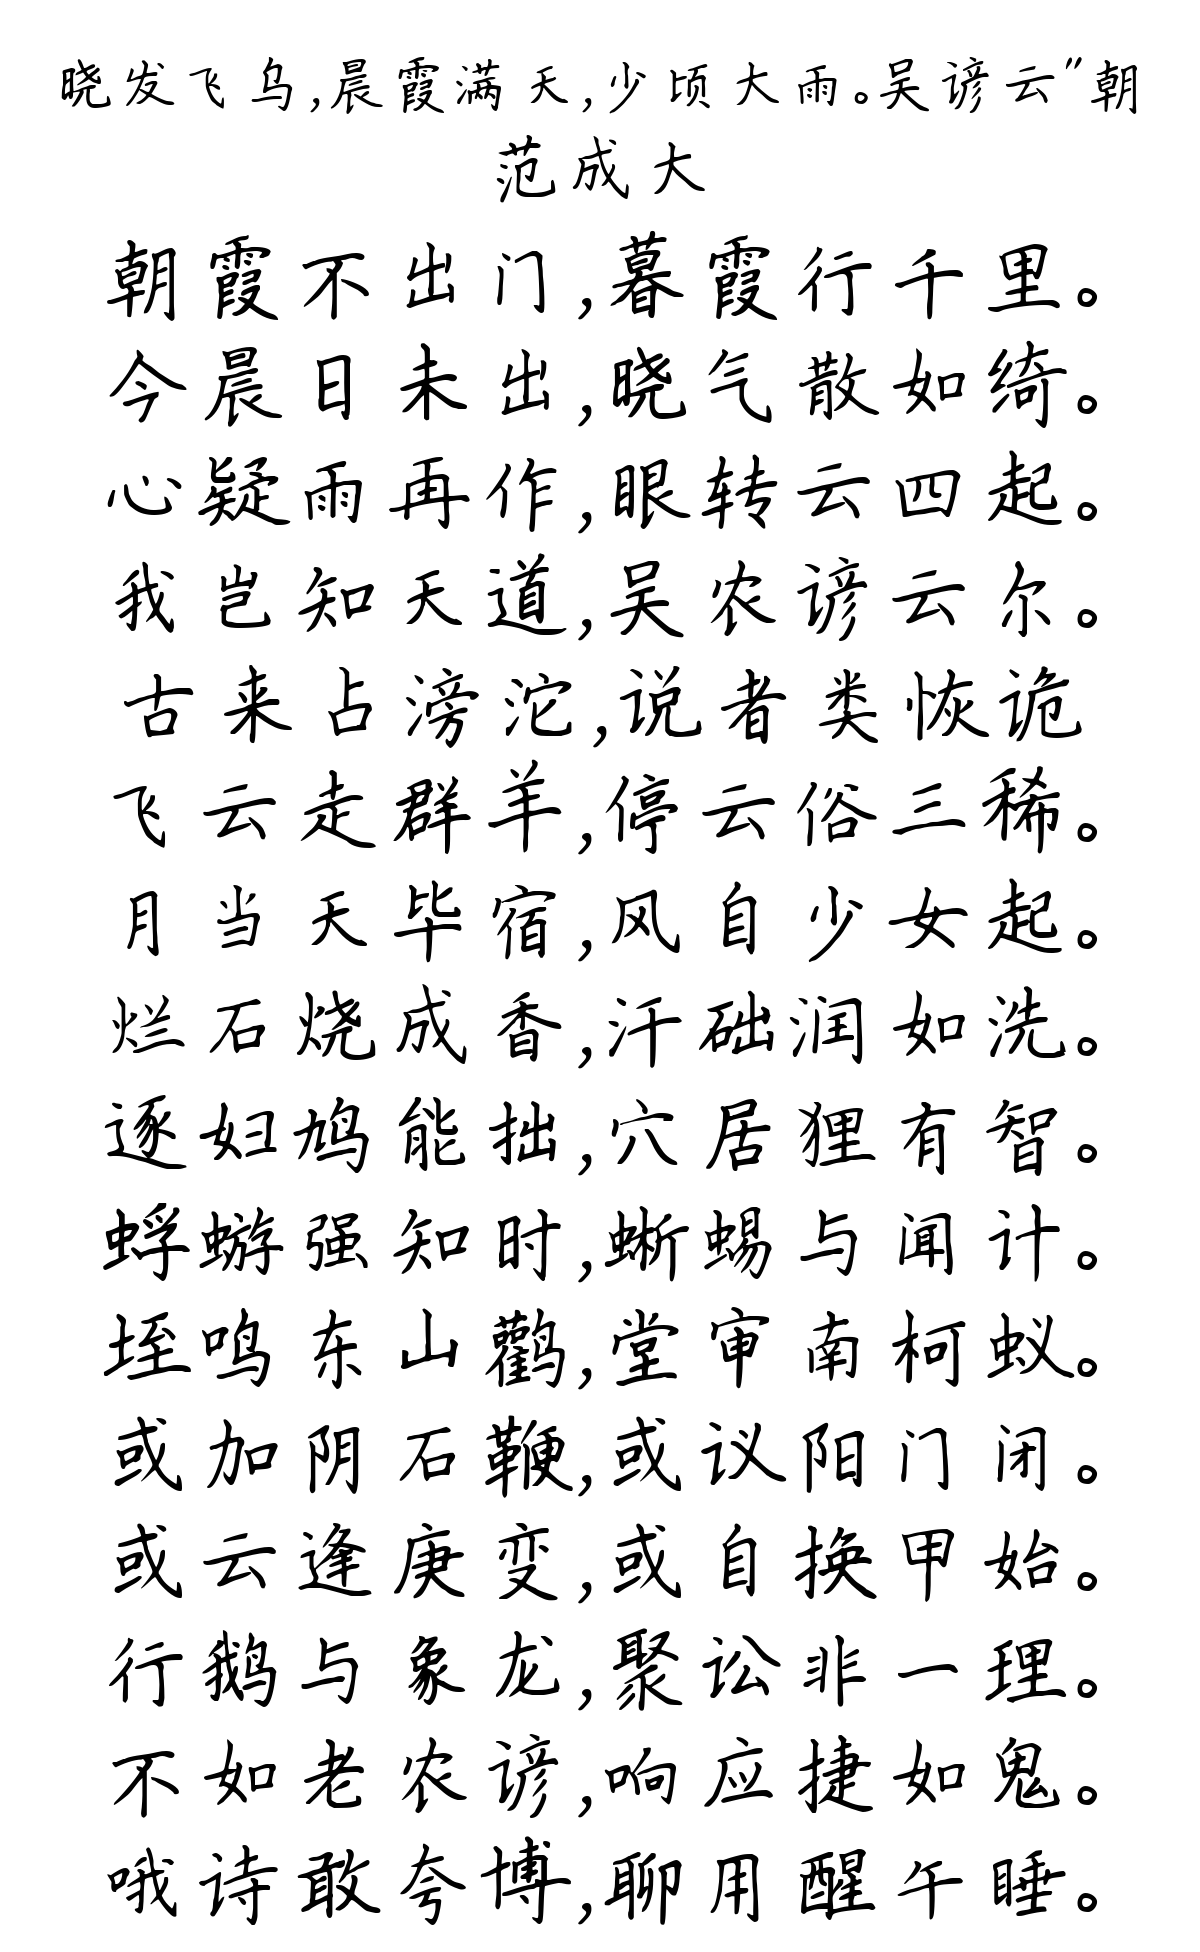 晓发飞乌,晨霞满天,少顷大雨。吴谚云"朝
范成大
朝霞不出门,暮霞行千里。
今晨日未出,晓气散如绮。
心疑雨再作,眼转云四起。
我岂知天道,吴农谚云尔。
古来占滂沱,说者类恢诡
飞云走群羊,停云俗三稀。
月当天毕宿,风自少女起。
烂石烧成香,汗础润如洗。
逐妇鸠能拙,穴居狸有智。
蜉蝣强知时,蜥蜴与闻计。
垤鸣东山鹳,堂审南柯蚁。
或加阴石鞭,或议阳门闭。
或云逢庚变,或自换甲始。
行鹅与象龙,聚讼非一理。
不如老农谚,响应捷如鬼。
哦诗敢夸博,聊用醒午睡。